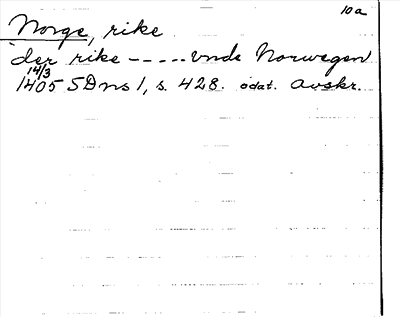 10a
Norge, rike
der rike ----- vnde Norwegen
14/3
1405 SDns 1, s. 428. odat. avskr.